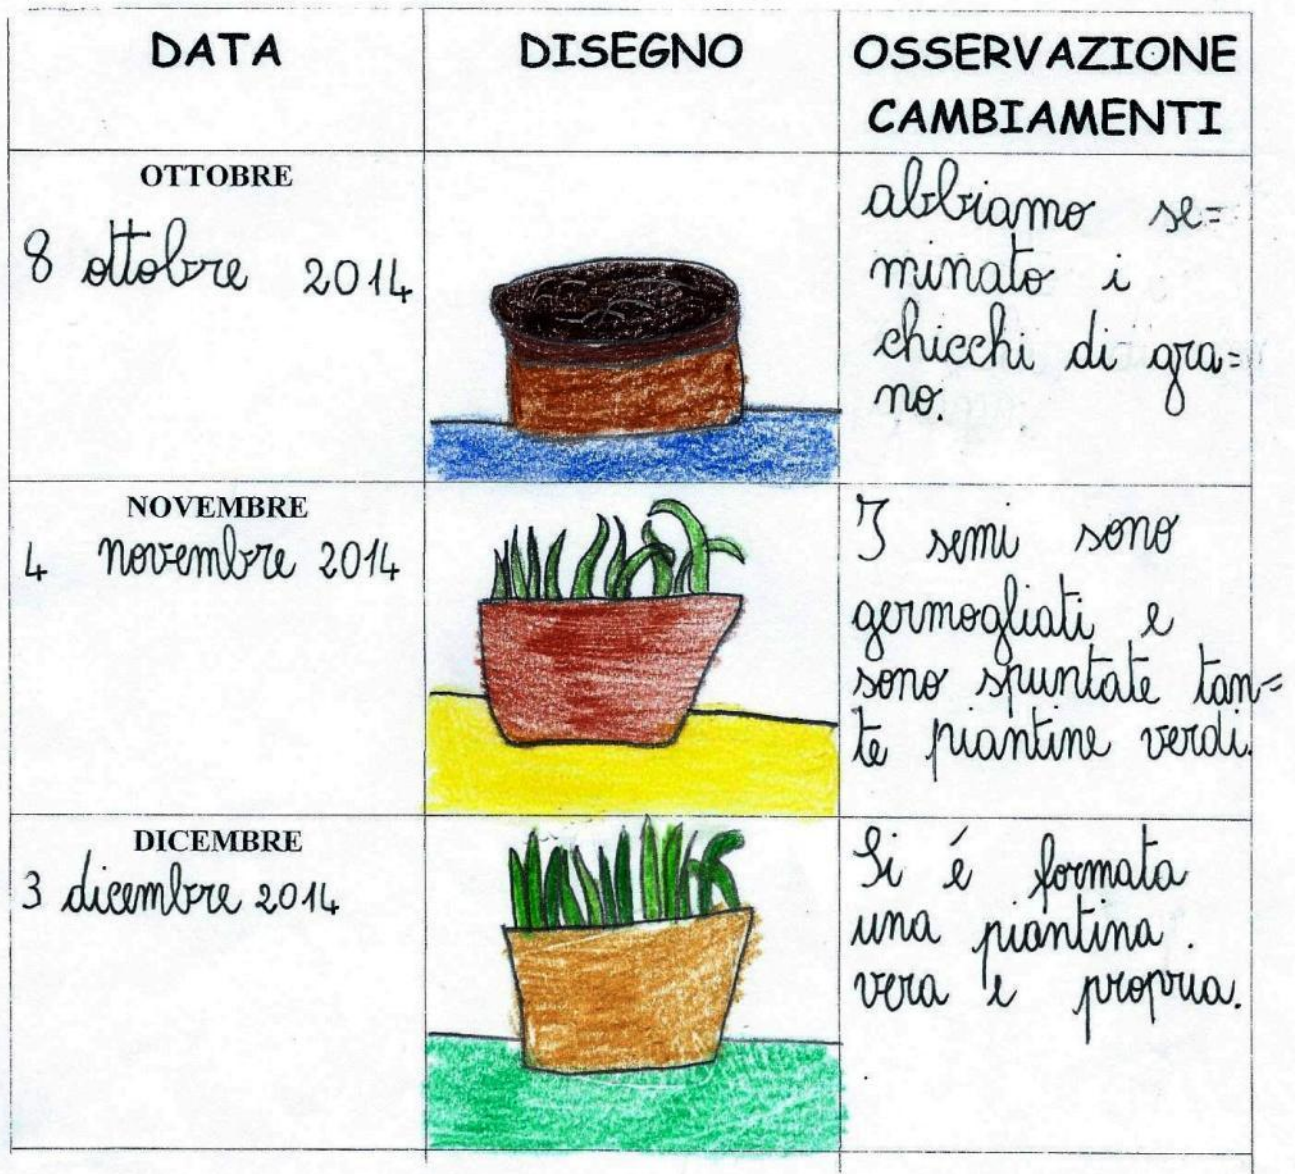 DATA
DISEGNO
OSSERVAZIONE
CAMBIAMENTI
OTTOBRE
8 ottobre 2014
abbiamo se=
minato i
chicchi di gra=
no.
NOVEMBRE
4 novembre 2014
I semi sono
germogliati e
sono spuntate tan=
te piantine verdi.
DICEMBRE
3 dicembre 2014
Si é formata
una piantina.
vera e propria.